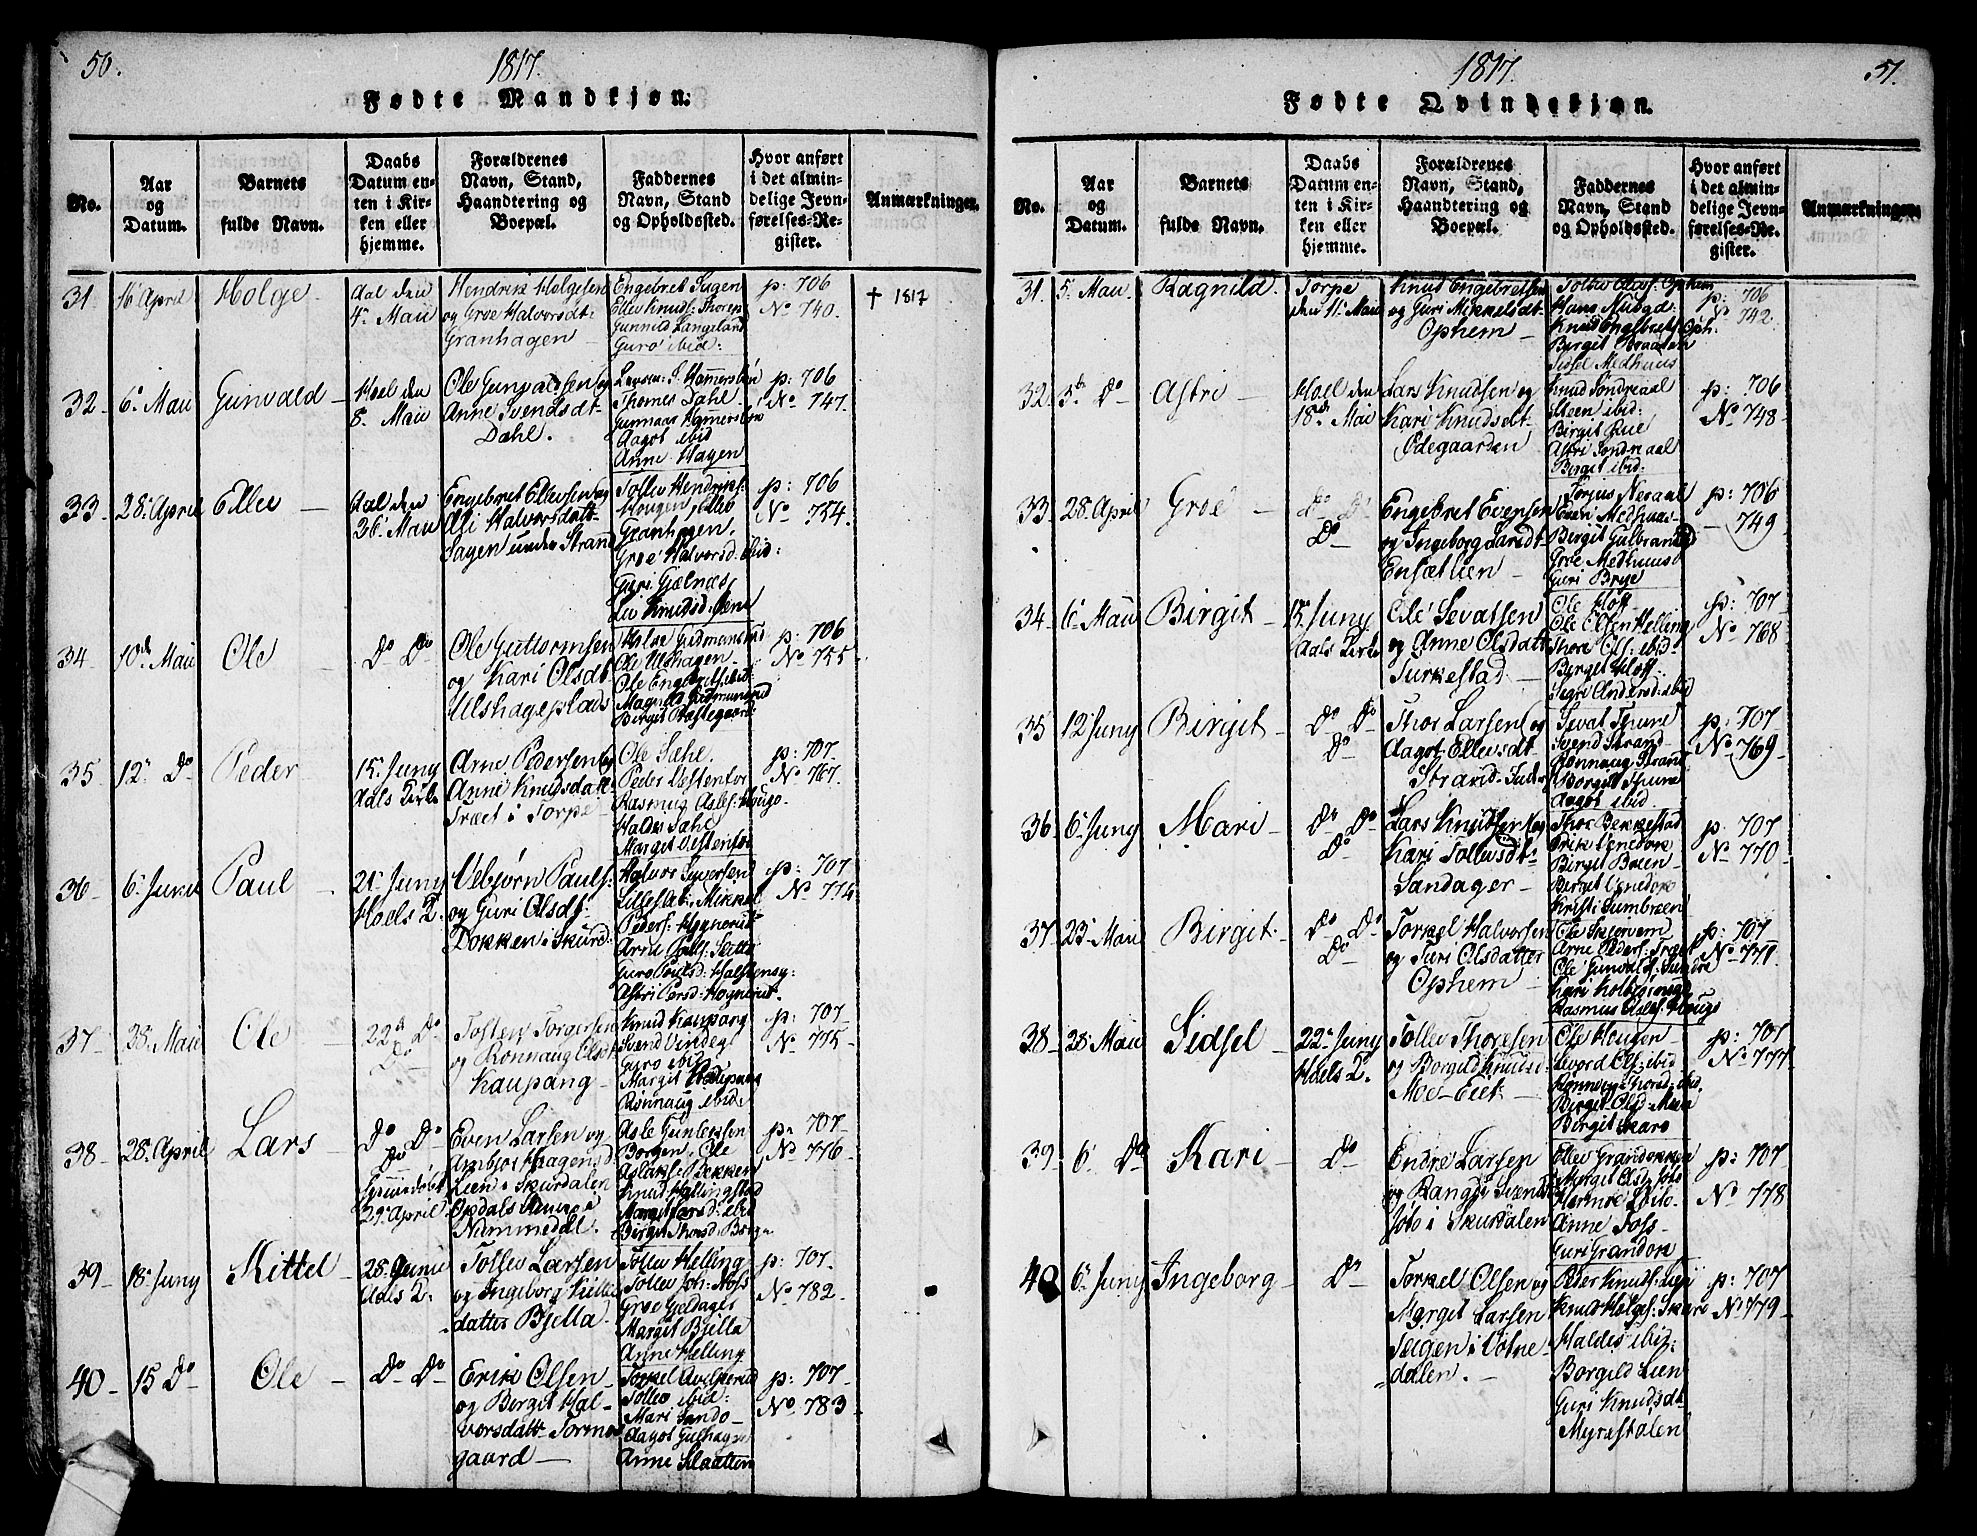 50.
1817.
Fødte Mandkjøn.
No.
Aar
og
Datum.
Barnets
fulde Navn.
Daabs
Datum en-
ten i Kir-
ken eller
hjemme.
Forældrenes
Navn, Stand,
Haandtering og
Boepæl.
Faddernes
Navn, Stand
og Opholdssted.
Hvor anført
i det almin-
delige Jevn-
førelses-Re-
gister.
Anmærkninger.
31
16 April
Holge
Aal den
4. Maii
Hendrik Holgesen
og Groe Halvorsdt:
Granhagen
Engebret Sagen
Ellev Knuds: Thorep
Gunnild Langeland
Guro ibid:
p: 706
No 740.
† 1817
32
6. Maii
Gunvald
Hoel den
8. Maii
Ole Gunvaldsen og
Anne Svendsdt-
Dahl.
Thomes Dahl
Gunnaar Hamersbøn
Aagot ibid
Anne Hagen
p: 706
No 747.
33
28. April
Ellev
Aal den
26. Maii
Engebret Ellevsen og
Asli Halvorsdatt-
Sagen under Strand
Tollev Hendriks:
Hougen, Ellev
Granhagen
Groe Halvorsd: ibid:
Guri Gjelnæs
Liv Knudsd:
p: 706
No 754.
34
10de Maii
Ole
Do Do
Ole Guttormsen
og Kari Olsdt.
Ulshageplads
Ole Ulshagen
Ole Engebrets: ibid:
Birgit Opstegaard
p: 706
No 755
35
12. Do
Peder
15. Juny
Aals Kirke
Arne Pedersen og
Anne Knudsdatt-
Træet i Torpe
Ole Sæhl.
Peder Vestenfor
Rasmus Aslef: Hougo.
Haldes Sahl
Margit Vestenfor
p: 707.
No 767.
36
6. Junii
Paul
21. Juny
Hoels K.
Vebjørn Pauls:
og Guri Olsdt:
Dokken i Skurd:
Halvor Syversen
Lilleslat: Mikkel
Peders: Hognerud
Guro Pouls: Halstensg:
Astri Persd: Hognerud
p: 707
No 774
37
28. Maii
Ole
22d Do
Do
Tosten Torgersen
og Rønnaug Olsdt
Kaupang
Knud Kaupang
Svend Vindeg
Guro ibid
Margit Kaupang
Rønnaug ibid:
p: 707
No 775
38
28. April
Lars
Do Do
Do
29. April
Even Larsen og
Lien i Skurdalen
Opdals Annex i
Nummedal.
Asle Guntleksen
Borgen, Ole
Aslakse: Bækken
Knud Hallingstad
p: 707
No 776
39
18. Juny
Kittel
28. Junii
Aals K.
Tollev Larsen
og Ingeborg Kittels
datter Bjella.
Tollev Helling
Tollev Joh: Noss
Groe Geldager
Margit Bjella
Anne Helling
p: 707.
No 782
40
15 Do
Ole
Do Do
Erik Olsen
og Borgit Hal-
vorsdatt- Tormo-
gaard
Torkel Avelsrud
Tollev ibid:
Mari Sando
Aagot Gulhagen
Anne Slaatten
p: 707
No 783
1817.
51.
Fødte Qvindekjøn.
No.
Aar
og
Datum.
Barnets
fulde Navn.
Daabs
Datum en-
ten i Kir-
ken eller
hjemme.
Forældrenes
Navn, Stand,
Haandtering og
Boepæl.
Faddernes
Navn, Stand
og Opholdssted.
Hvor anført
i det almin-
delige Jevn-
førelses-Re-
gister.
Anmærkninger.
31.
5. Maii
Ragnild
Torpe
den 11. Maii
Knud Engebretsen
og Guri Mikkelsdt-
Ophem
Tollev Olsen Ophem
Knud Engebrets: Oph:
Birgit Braaten
Sidsel Medhuus
p: 706
No 742.
32
5te Do
Astri
Hoel den
18de Maii
Lars Knudsen og
Kari Knudsdt-
Ødegaarden
Knud Søndreaal
Steen ibid:
Birgit Rue
Astri Søndreaal
Birgit ibid:
p: 706
No 748
33
28. April
Groe
Do Do
Do
Engebret Evensen
og Ingeborg Larsdt-
Ensætlien
Torjus Nesaal
Even Medhuus
Birgit Gulbrands
Groe Medhuus
Guri Brye
p: 706
749
34
6. Maii
Birgit
15. Juny
Aals Kirke
Ole Sevatsen
og Anne Olsdatt
Turkestad
Ole Hoff
Ole Olsen Helling
Thore Ols: ibid
Birgit Hoff
Sigri Andersd: ibid
p: 707
No 768
35
12 Juny
Birgit
Do Do
Do
Thor Larsen og
Aagot Ellevsdt
Strand
Sevat Thune
Svend Strand
Rønnaug Strand
Borgit Thune
Aagot ibid.
p: 707
No 769
36
6. Juny
Mari
Do Do
Do
Lars Knudsen og
Kari Tollevsdt:
Sandager
Thor Bekkestad
Erik Venedok
Birgit Braten
Birgit Venedok
Kristi Sumbreen
p. 707
No 770
37
23 Maii
Birgit
Do Do
Do
Torkel Halvorsen
og Turi Olsdatter
Ophem
Ole Skiervem
Arne Peders: Træet
Ole Gunvalds: Sundre
Rasmus Aslef: Hougo
p: 707
No 771
38
28 Maii
Sidsel
22. Juny
Hoels K.
Tollev Thoresen
og Borgild Knudsd
Moe-Eiet
Ole Hougen
Levord Ols: ibid
Birgit Olsd: Moen
Borgit Skaro
p: 707
No 777
39
6. Do
Kari
Do
Endre Larsen
og Rangdi Svends
i Skurdalen
Ellev Grandokken
Anne Foss
Guri Grandok
p: 707
No 778
40
6. Juny
Ingeborg
Do
Torkel Olsen og
Margit Larsen
Sagen i Votne
dalen.
Peder Knuds: Lien
Knud Holges: Skaro
Haldes ibid:
Borgild Lien
Guri Knudsdt
Myrestølen
p: 707
No 779